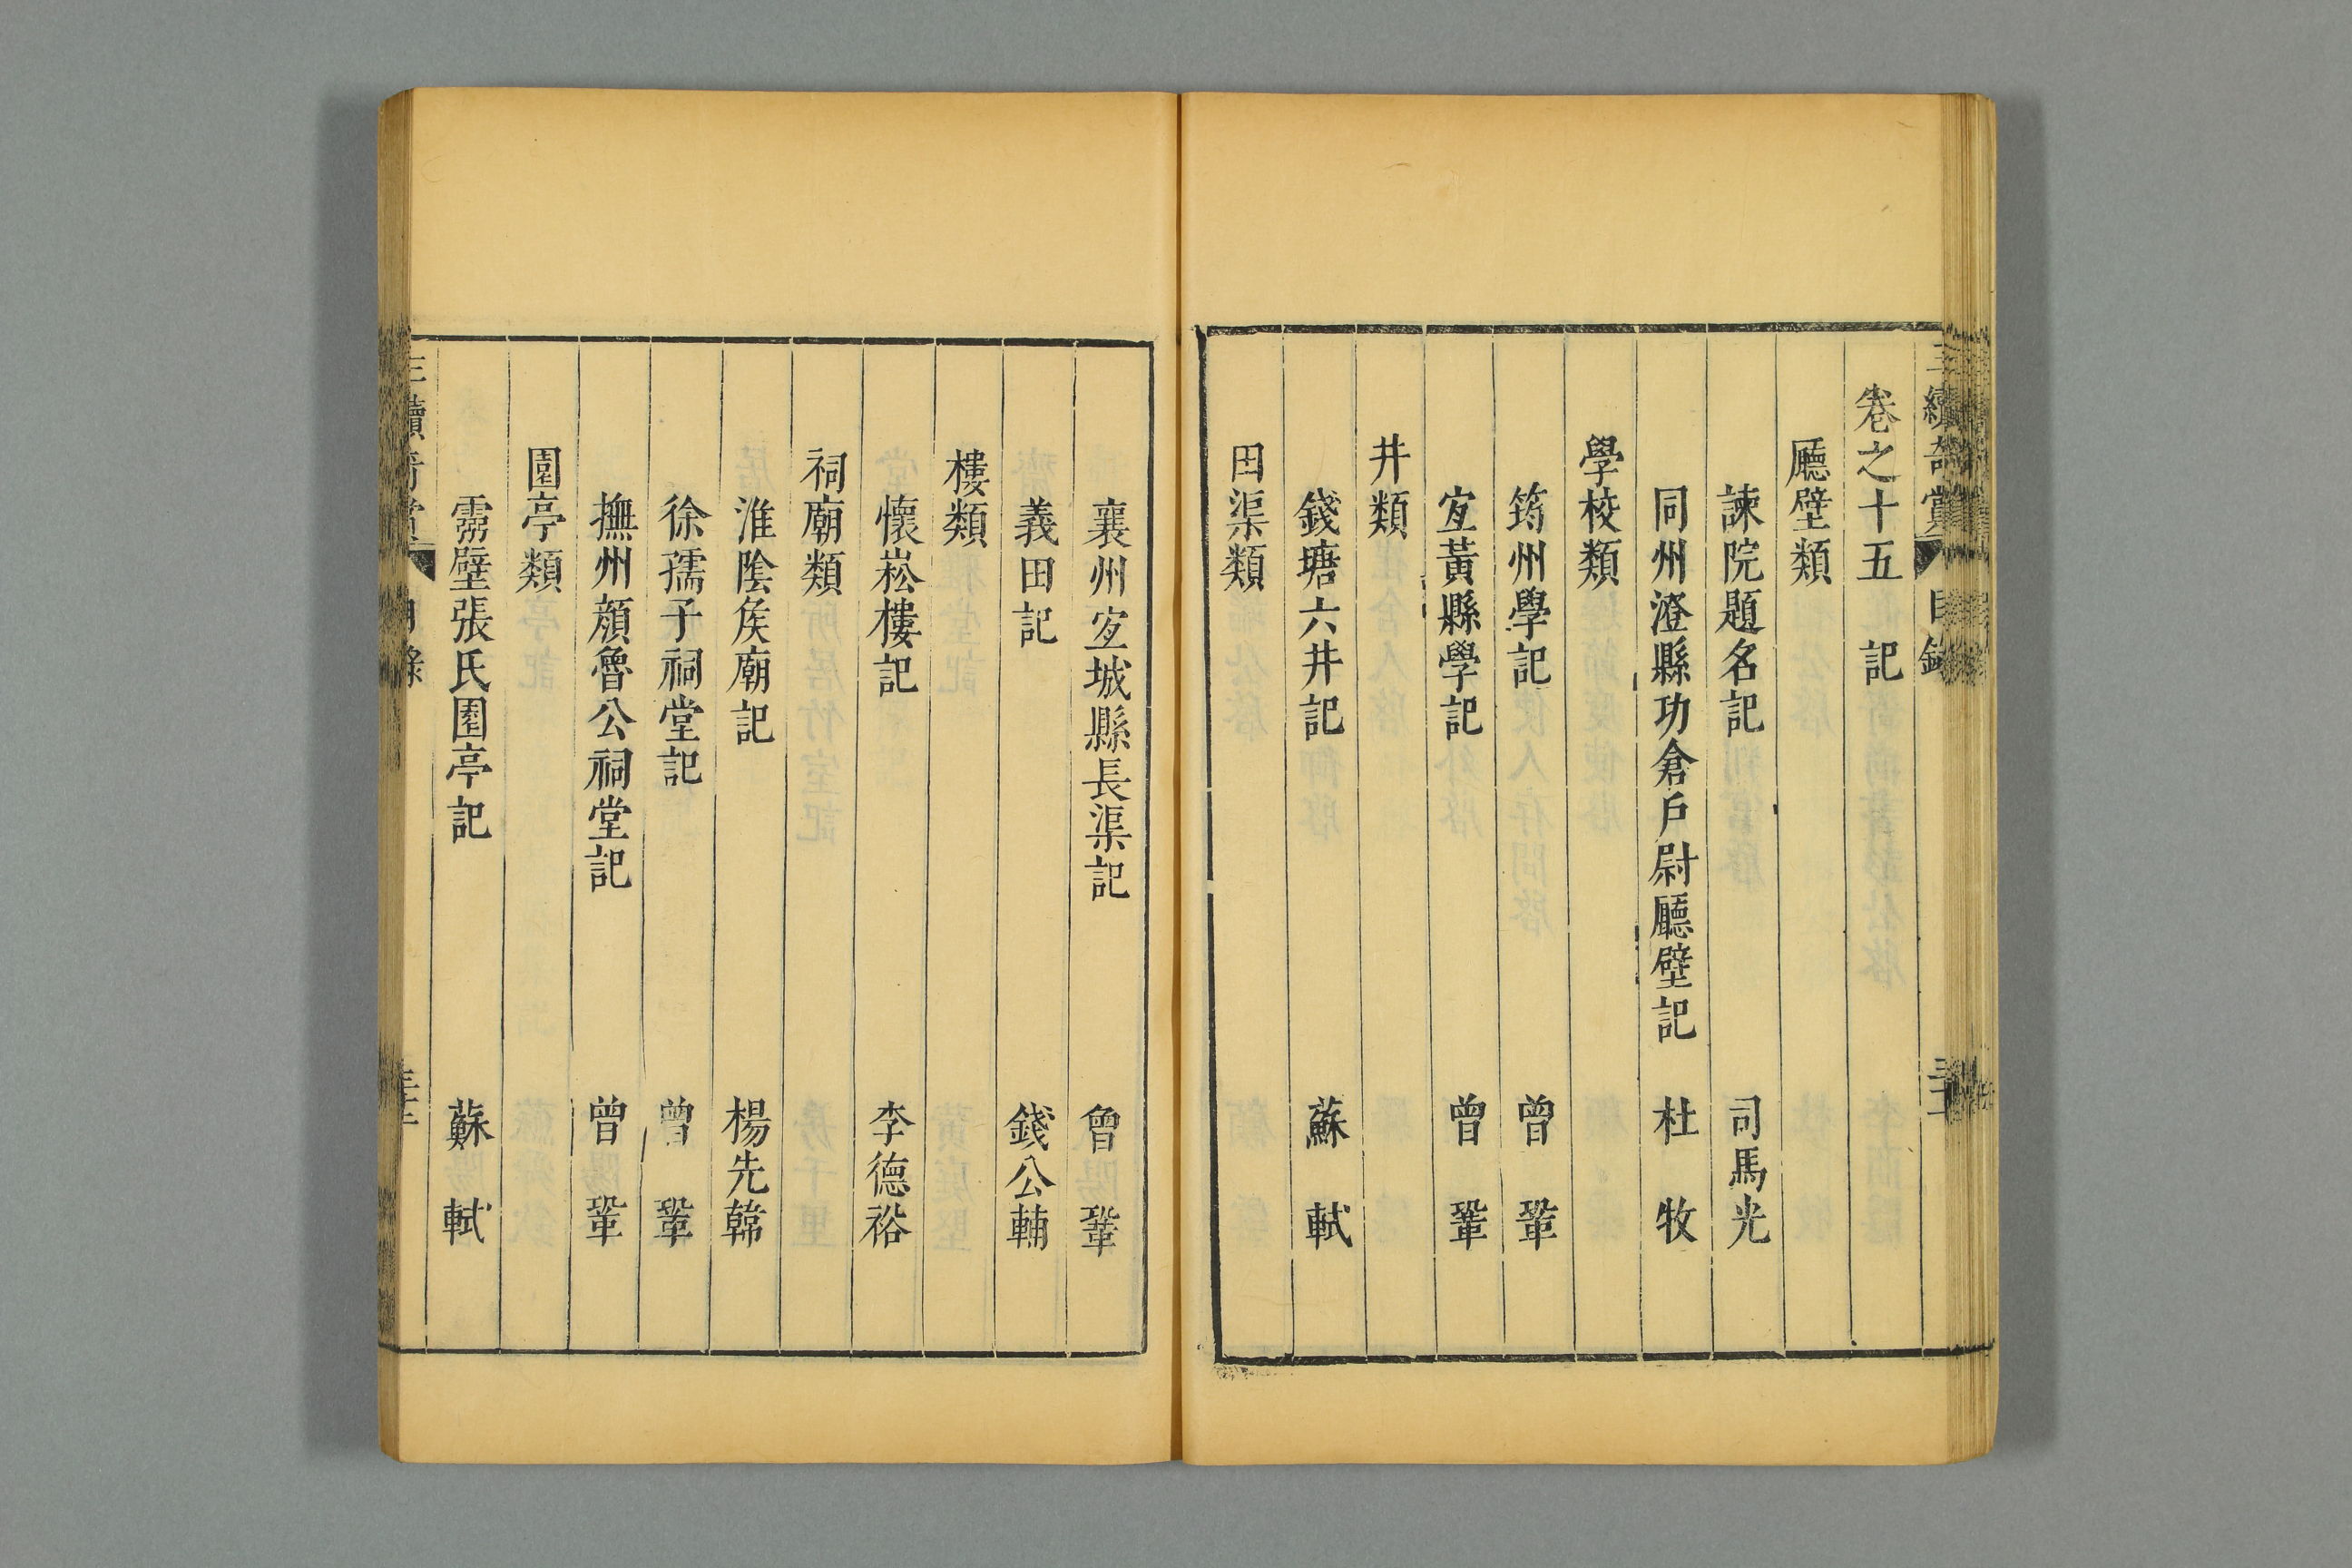 三續奇賞 目錄
卷之十五 記
廳壁類
諫院題名記 司馬光
同州澄縣功倉戶尉廳壁記 杜牧
學校類
筠州學記 曾鞏
宜黃縣學記 曾鞏
井類
錢塘六井記 蘇軾
田渠類
襄州宜城縣長渠記 曾鞏
義田記 錢公輔
樓類
懷崧樓記 李德裕
祠廟類
淮陰侯廟記 楊先韓
徐孺子祠堂記 曾鞏
撫州顏魯公祠堂記 曾鞏
園亭類
靈壁張氏園亭記 蘇軾
三續奇賞 目錄